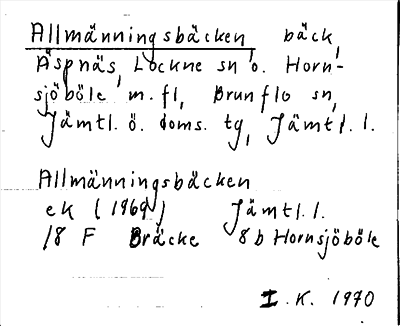 Allmänningsbäcken, bäck,
Äspnäs, Lockne sn o. Horn-
sjöböle m.fl, Brunflo sn,
Jämtl. ö. doms. tg, Jämtl. l.
Allmänningsbäcken
ek (1969) Jämtl. l.
18 F Bräcke 8b Hornsjöböle
I.K. 1970